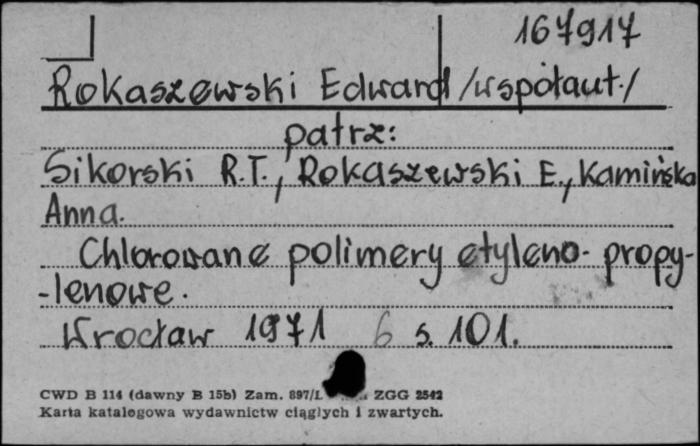 167917
Rokaszewski Edward /współaut./
patrz:
Sikorski R.T., Rokaszewski E., Kamińska
Anna.
Chlorowane polimery etyleno-propy-
-lenowe.
Wrocław 1971 6 s. 101.
CWD B 114 (dawny B 15b) Zam. 897/L ZGG 2542
Karta katalogowa wydawnictw ciągłych i zwartych.